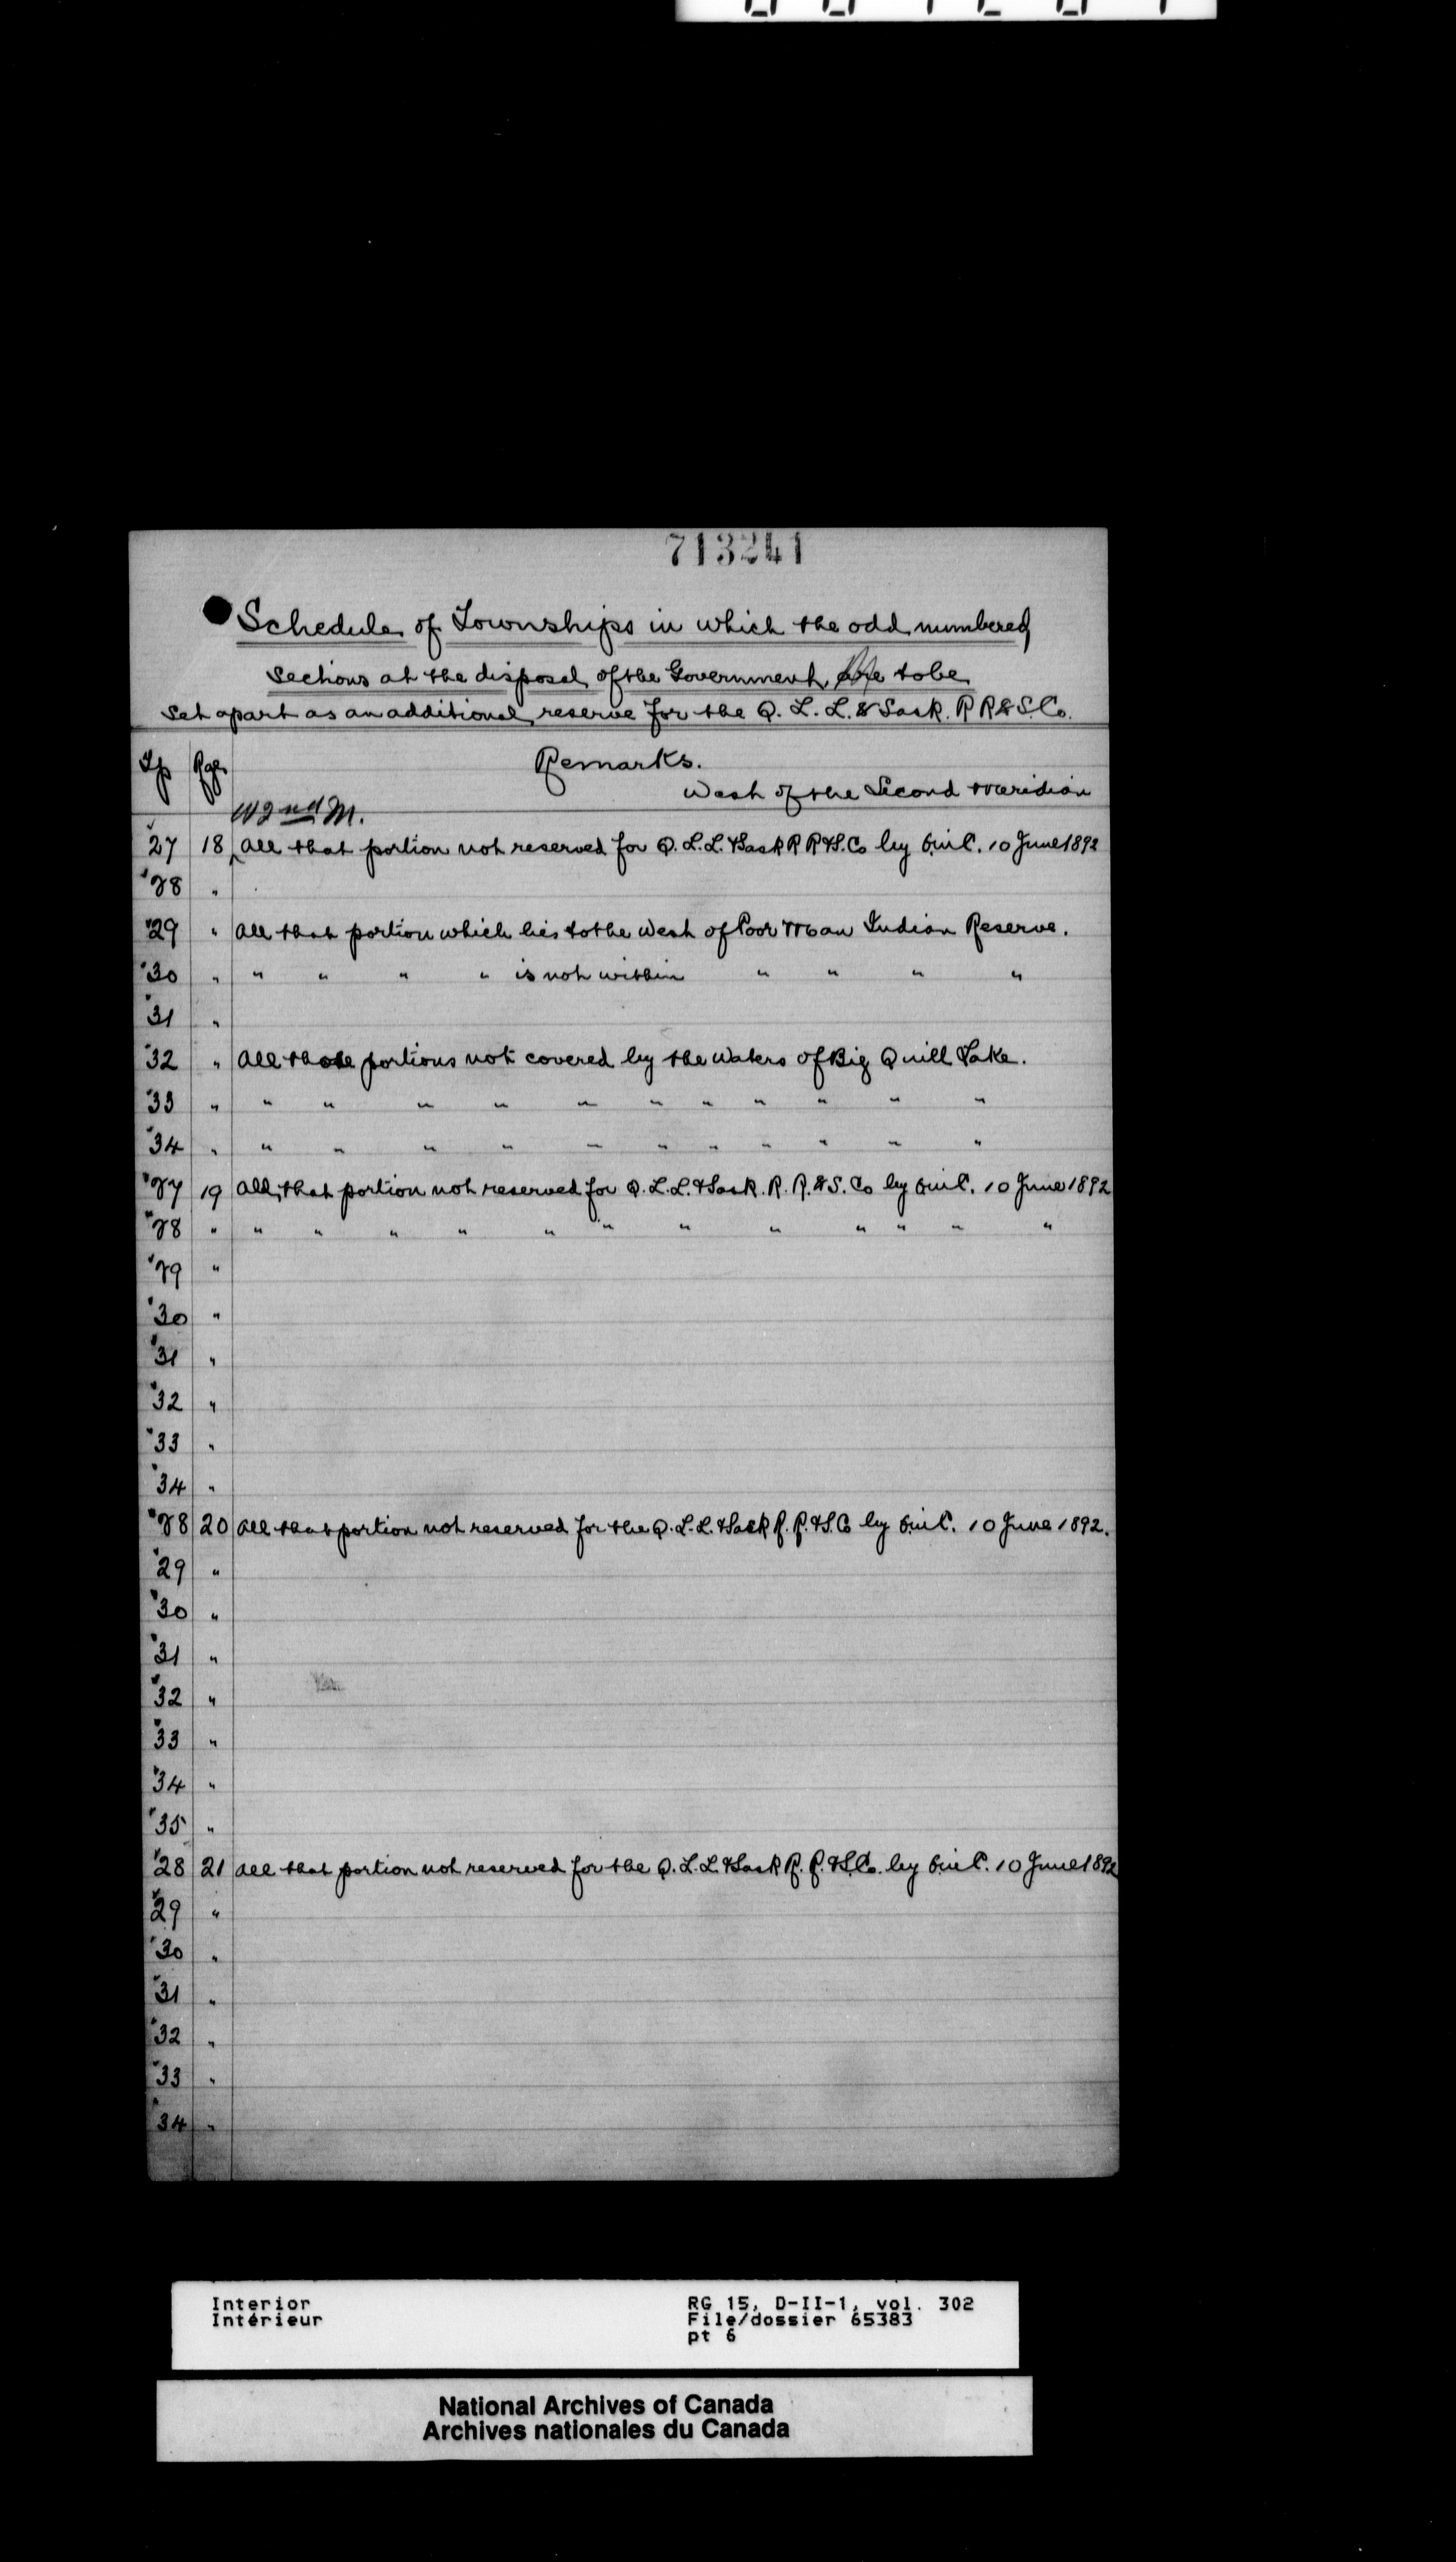 713241
Schedule of Townships in which the odd numbered
Sections at the disposal of the Government are to be
set apart as an additional reserve for the Q. L. L. & Sask. R R & S. Co.
Tp Rge Remarks.
West of the Second Meridian
W 2nd M.
27 18 All that portion not reserved for Q. L. L. & Sask R R & S. Co by O. in C. 10 June 1892
28 "
29 " All that portion which lies to the West of Poor Man Indian Reserve.
30 " " " " " is not within " " " "
31 "
32 " All those portions not covered by the Waters of Big Quill Lake.
33 " " " " " " " " " " " "
34 " " " " " " " " " " " "
27 19 All that portion not reserved for Q. L. L. & Sask. R. R. & S. Co by O. in C. 10 June 1892
28 " " " " " " " " " " " " "
29 "
30 "
31 "
32 "
33 "
34 "
28 20 All that portion not reserved for the Q. L. L. & Sask R. R. & S. Co by O. in C. 10 June 1892.
29 "
30 "
31 "
32 "
33 "
34 "
35 "
28 21 All that portion not reserved for the Q. L. L. & Sask R. R. & S. Co. by O. in C. 10 June 1892
29 "
30 "
31 "
32 "
33 "
34 "
Interior RG 15, D-II-1, vol. 302
Intérieur File/dossier 65383
pt 6
National Archives of Canada
Archives nationales du Canada